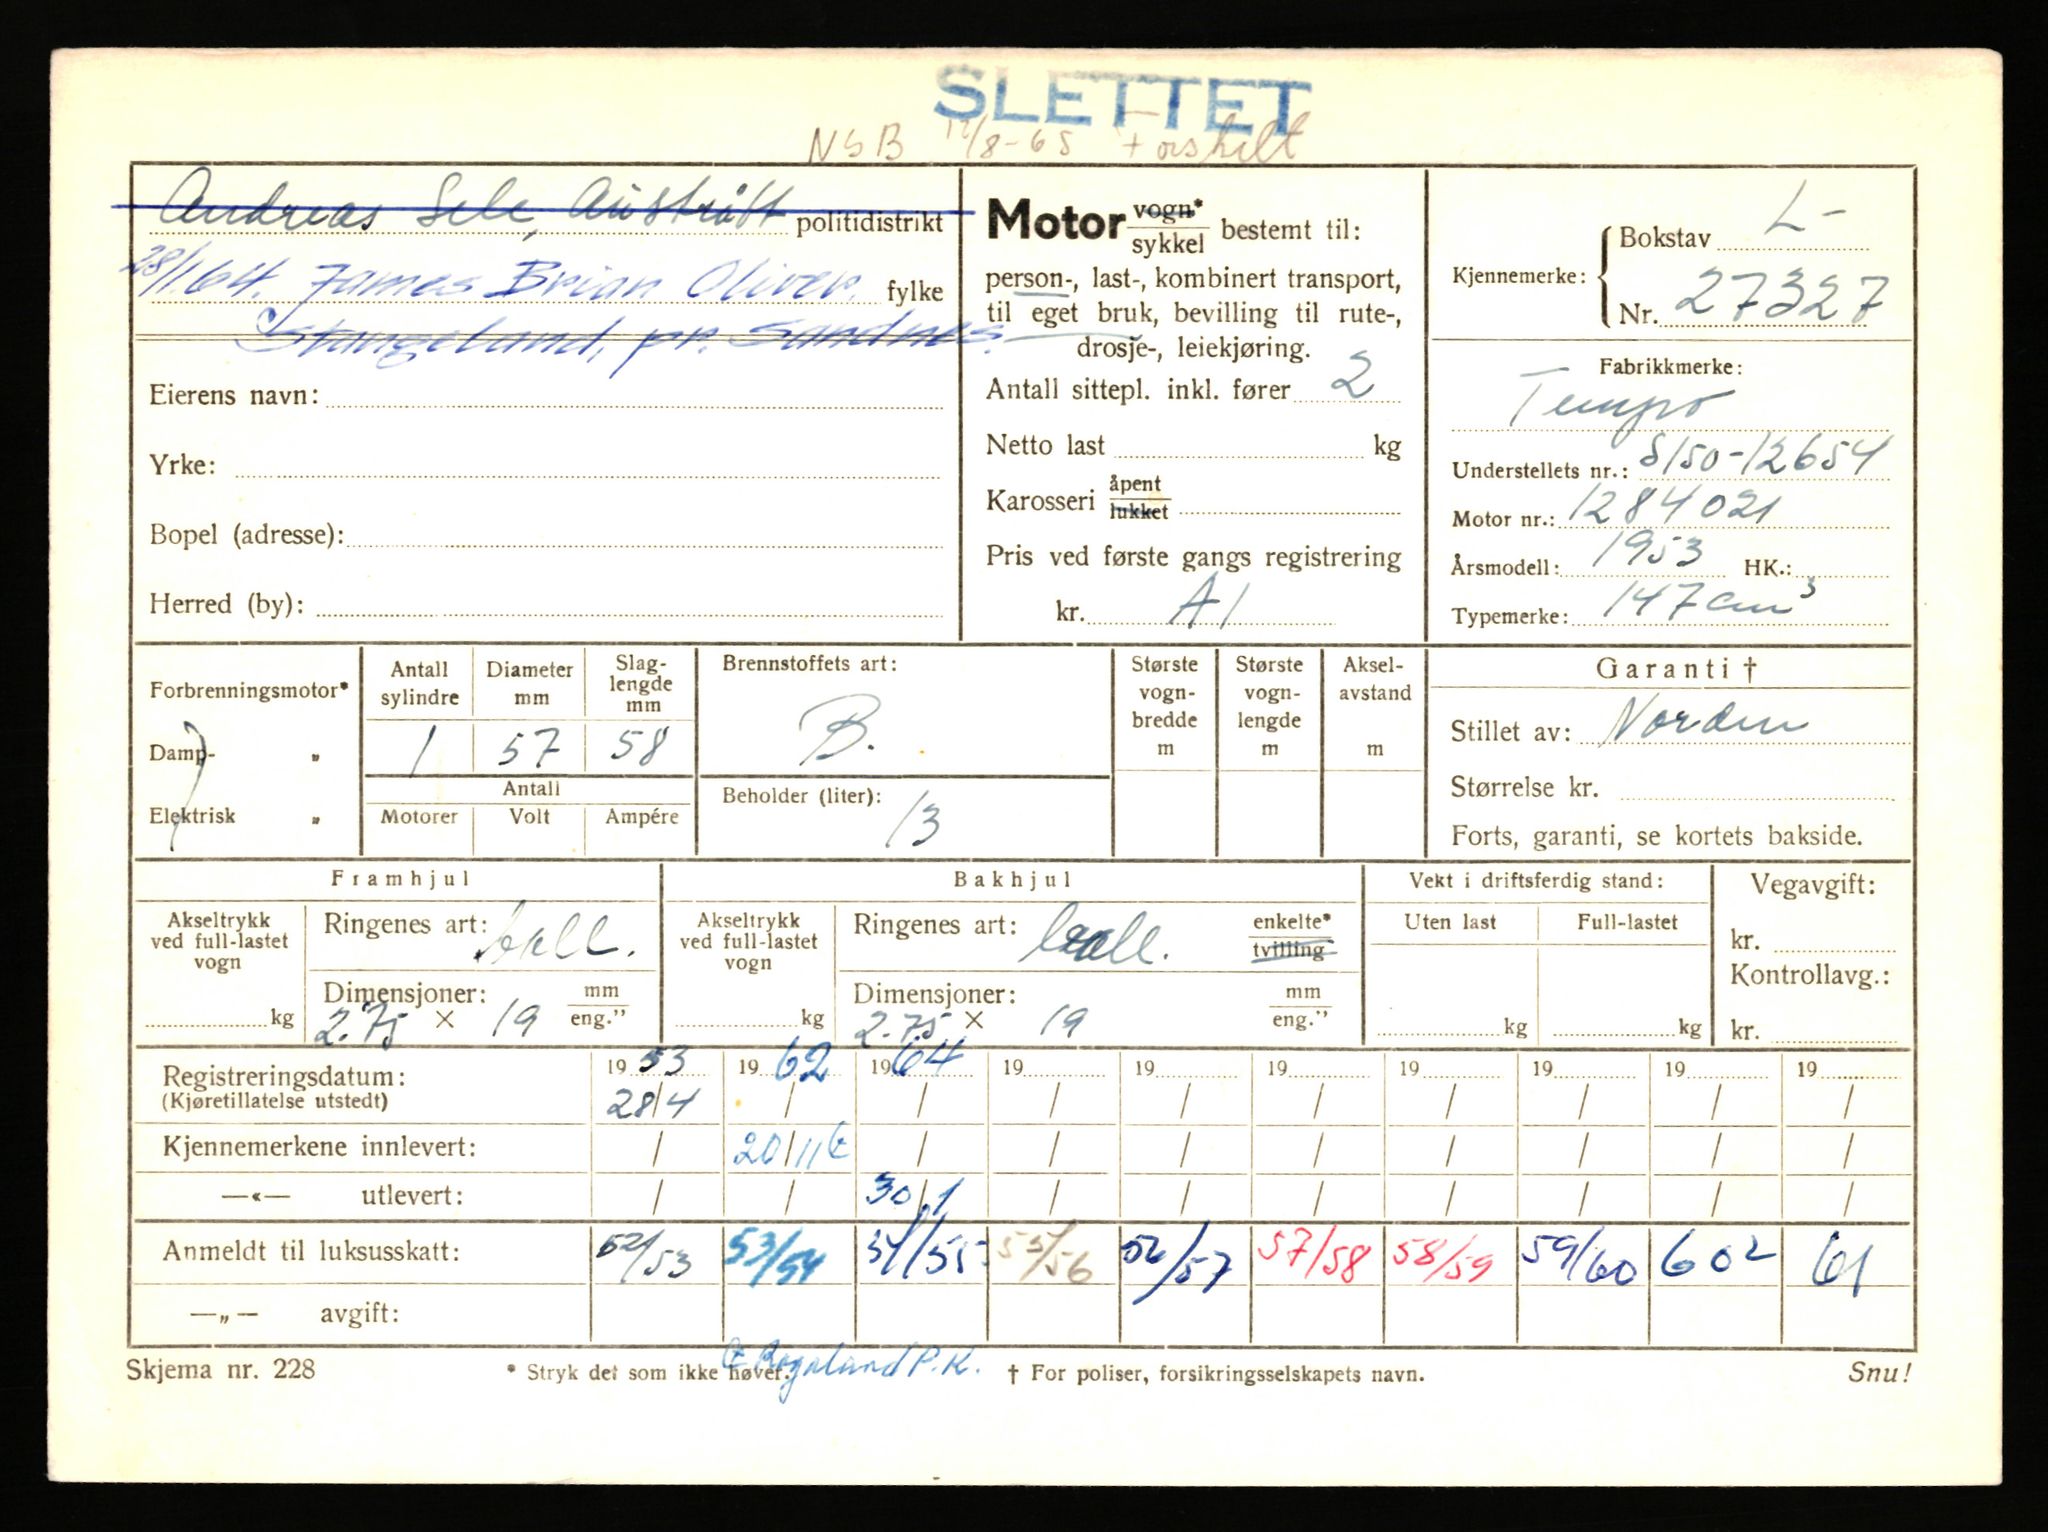 SLETTET
NSB 12/8-65 Forskilt
Andreas Sele, Austrått politidistrikt
28/1.64. James Brian Oliver. fylke
Stangeland, pr. Sandnes.
Eierens navn:
Yrke:
Bopel (adresse):
Herred (by):
Motor vogn* sykkel bestemt til:
person-, last-, kombinert transport,
til eget bruk, bevilling til rute-,
drosje-, leiekjøring.
Antall sittepl. inkl. fører 2
Netto last kg
Karosseri åpent lukket
Pris ved første gangs registrering
kr. A1
Kjennemerke: Bokstav L-
Nr. 27327
Fabrikkmerke:
Tempo
Understellets nr.: S150-12654
Motor nr.: 1284021
Årsmodell: 1953 HK.:
Typemerke: 147 cm³
Forbrenningsmotor*
Damp- „
Elektrisk „
Antall sylindre Diameter mm Slag-lengde mm
1 57 58
Antall
Motorer Volt Ampére
Brennstoffets art:
B.
Beholder (liter):
13
Største vogn-bredde m
Største vogn-lengde m
Aksel-avstand m
Garanti †
Stillet av: Norden
Størrelse kr.
Forts, garanti, se kortets bakside.
Framhjul
Akseltrykk ved full-lastet vogn
kg
Ringenes art: ball.
Dimensjoner: mm eng."
2.75 × 19
Bakhjul
Akseltrykk ved full-lastet vogn
kg
Ringenes art: ball. enkelte* tvilling
Dimensjoner: mm eng."
2.75 × 19
Vekt i driftsferdig stand:
Uten last Full-lastet
kg kg
Vegavgift:
kr.
Kontrollavg.:
kr.
Registreringsdatum: 1953 1962 1964 19 19 19 19 19 19 19
(Kjøretillatelse utstedt) 28/4 / / / / / / / / /
Kjennemerkene innlevert: / 20/11 / / / / / / / /
—«— utlevert: / / 30/1 / / / / / / /
Anmeldt til luksusskatt: 52/53 53/54 54/55 55/56 56/57 57/58 58/59 59/60 602 61
—„— avgift:
Skjema nr. 228 * Stryk det som ikke høver. † For poliser, forsikringsselskapets navn. Snu!
Rogaland P.K.